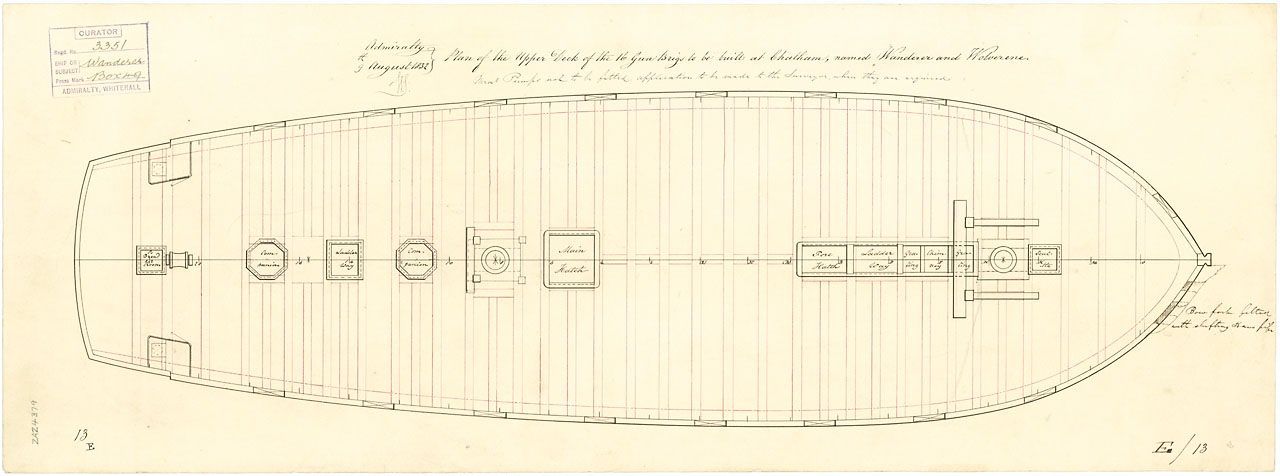 CURATOR
Regd. No. 3351
SHIP OR SUBJECT Wanderer
Press Mark Box 49
ADMIRALTY, WHITEHALL
Admiralty
9th August 1832
Plan of the Upper Deck of the 16 Gun Brigs to be built at Chatham, named Wanderer and Wolverene
Pumps not to be fitted application to be made to the Surveyor when they are required
Bread Room
Companion
Ladder Way
Companion
Main Hatch
Fore Hatch
Ladder Way
Grating
Chain
Grating
Scuttle
Bow port fitted
with shifting Hawse pipe
ZAZ4379
13
E
E/13